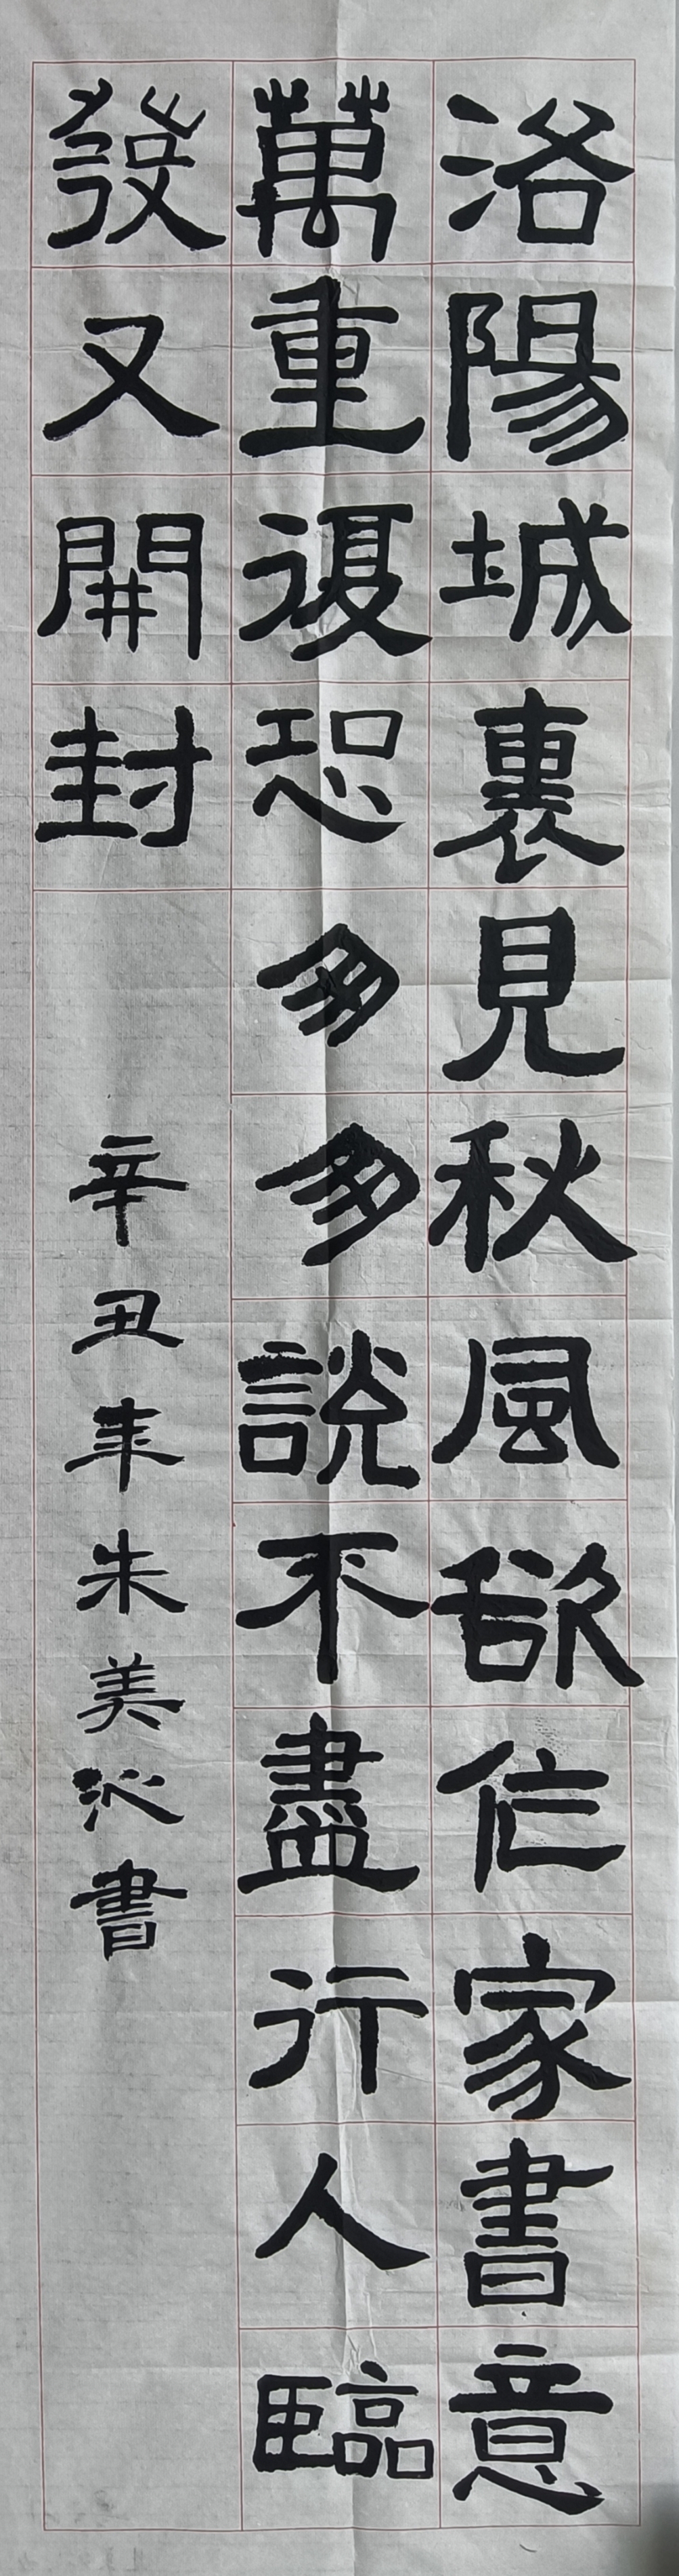 洛陽城裏見秋風欲作家書意
萬重復恐匆匆說不盡行人臨
發又開封
辛丑年朱美沁書